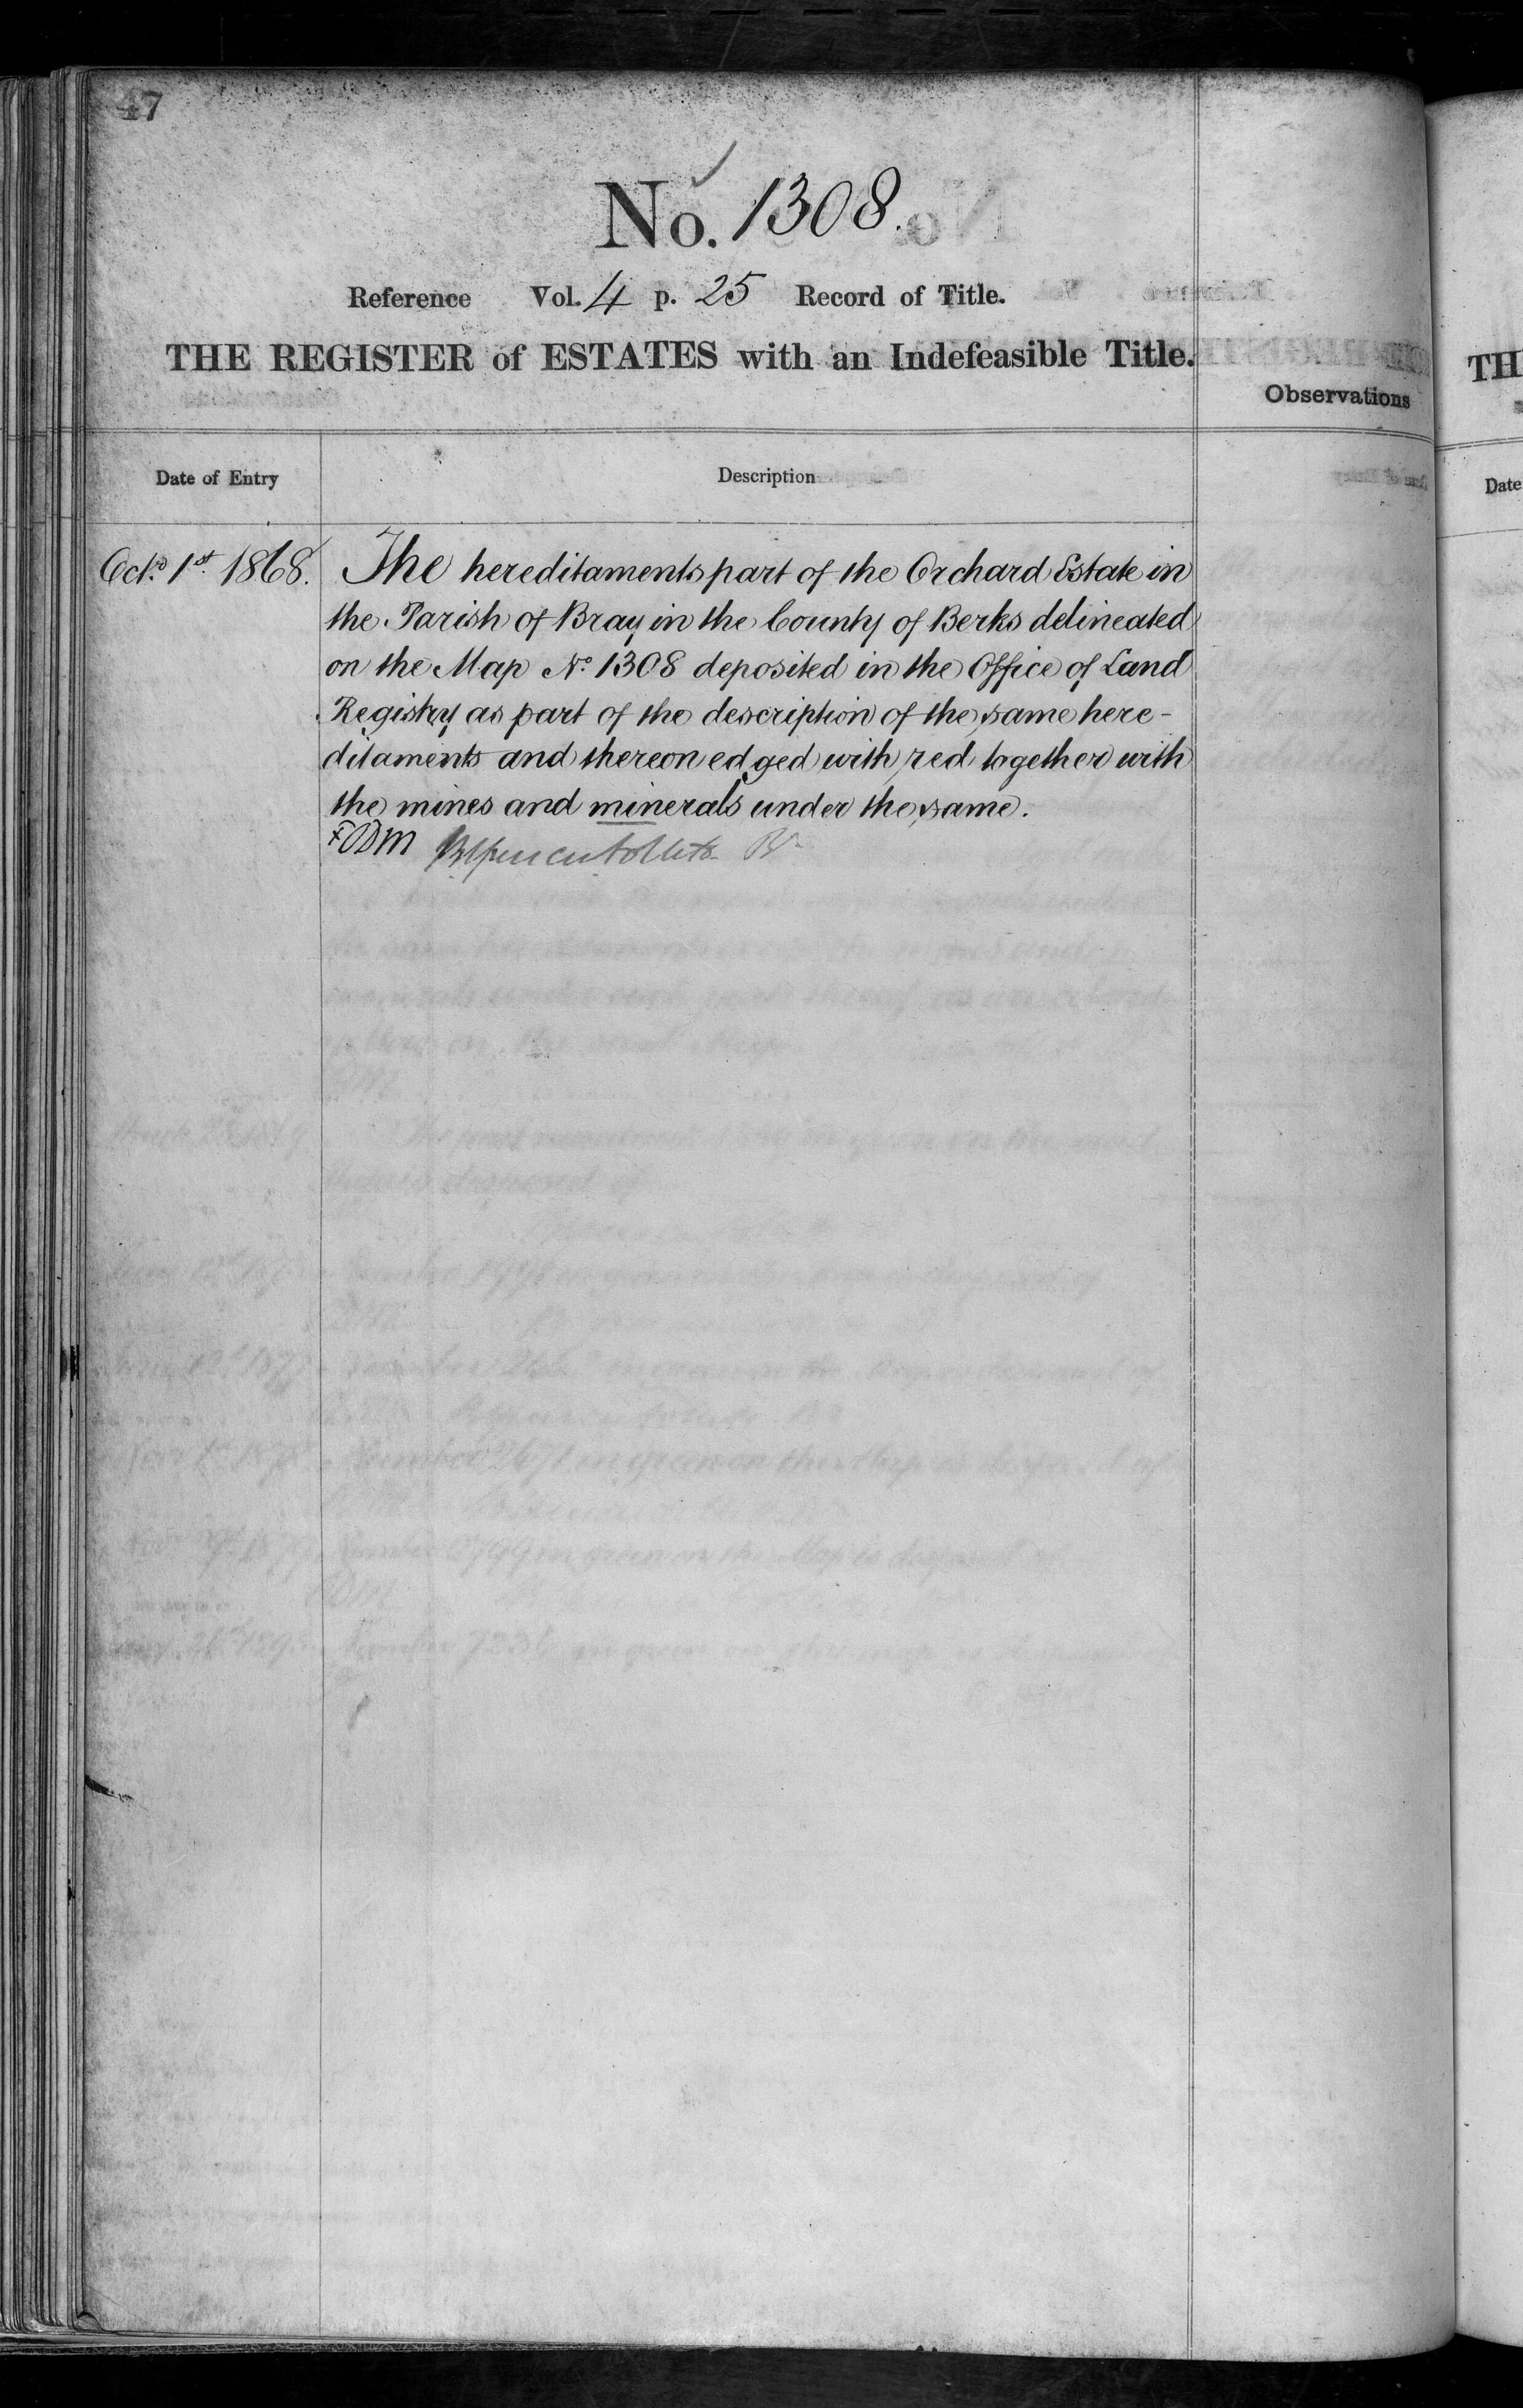 47
No. 1308.
Reference Vol. 4 p. 25 Record of Title.
THE REGISTER of ESTATES with an Indefeasible Title.
Observations
Date of Entry
Description
Oct.r 1st 1868.
The hereditaments part of the Orchard Estate in
the Parish of Bray in the County of Berks delineated
on the Map No. 1308 deposited in the Office of Land
Registry as part of the description of the same here-
ditaments and thereon edged with red together with
the mines and minerals under the same.
TH
Date